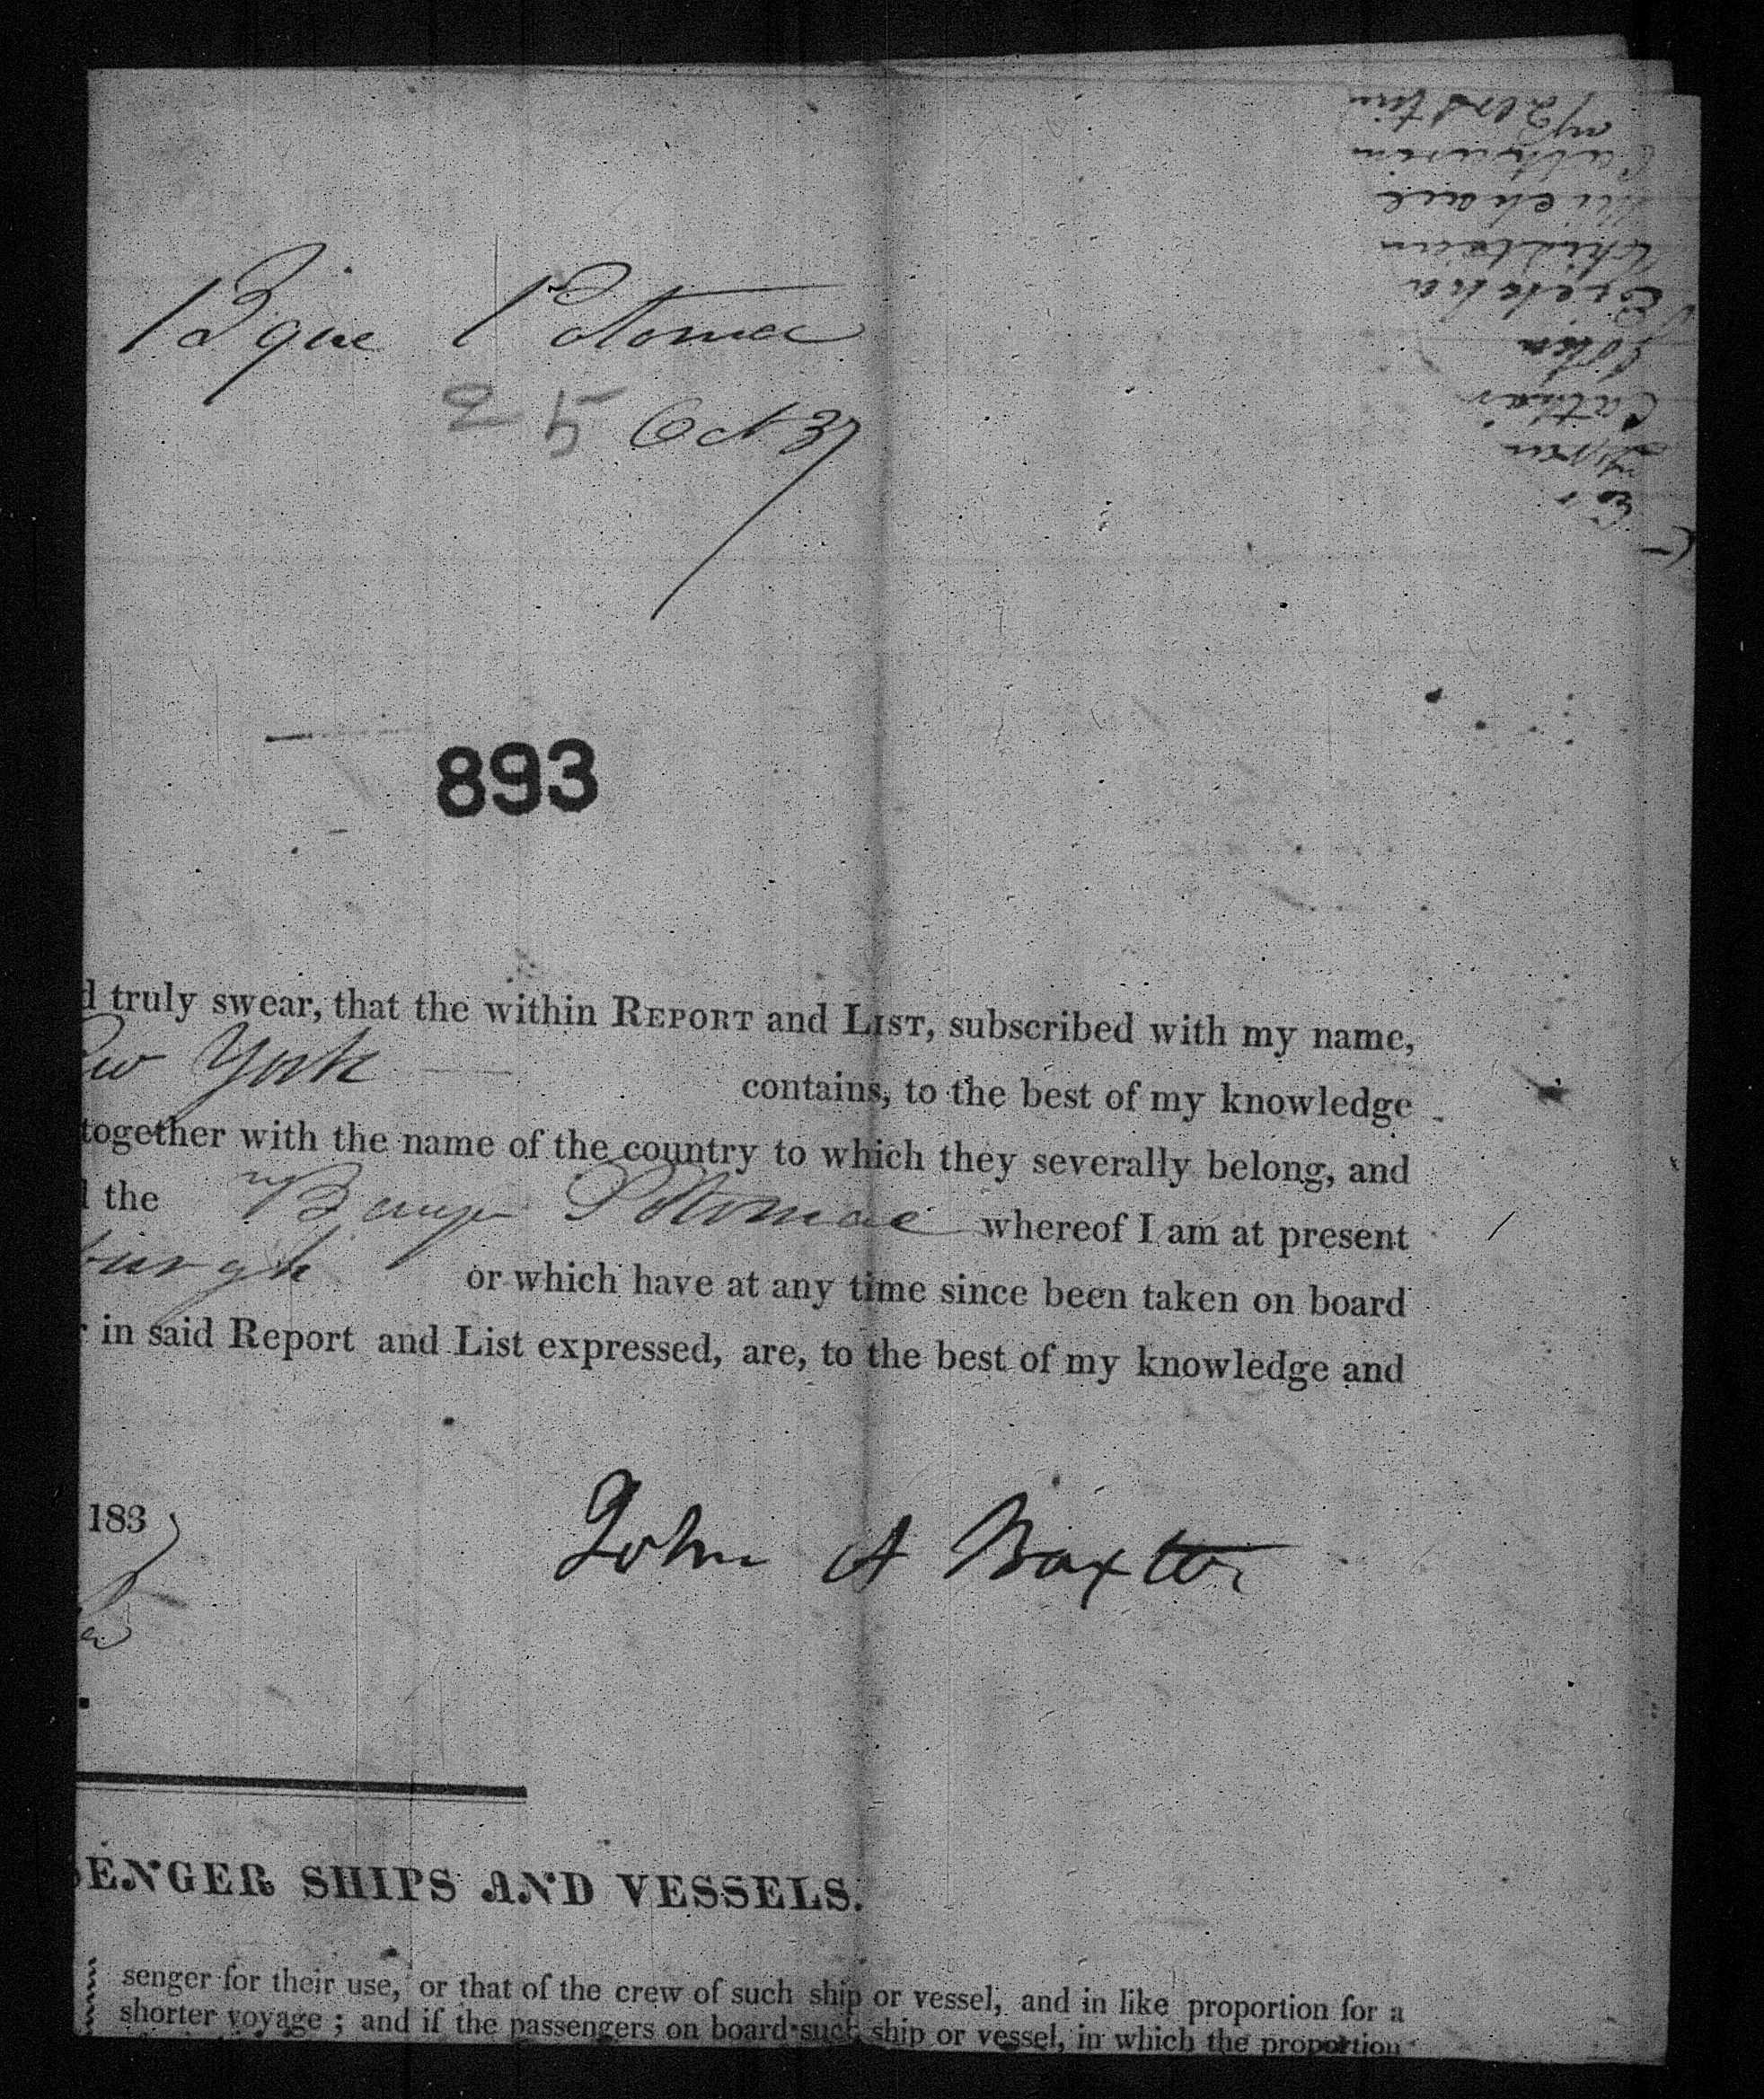 Bque Potomac
25 Oct 37
893
d truly swear, that the within REPORT and LIST, subscribed with my name,
ew York contains, to the best of my knowledge
together with the name of the country to which they severally belong, and
d the Barque Potomac whereof I am at present
burgh or which have at any time since been taken on board
r in said Report and List expressed, are, to the best of my knowledge and
183
John A Baxter
SENGER SHIPS AND VESSELS.
senger for their use, or that of the crew of such ship or vessel, and in like proportion for a
shorter voyage ; and if the passengers on board such ship or vessel, in which the proportion